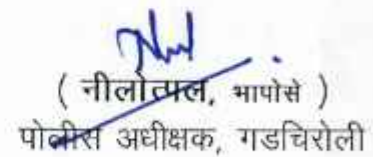 ( नीलोत्पल, भापोसे )
पोलीस अधीक्षक, गडचिरोली